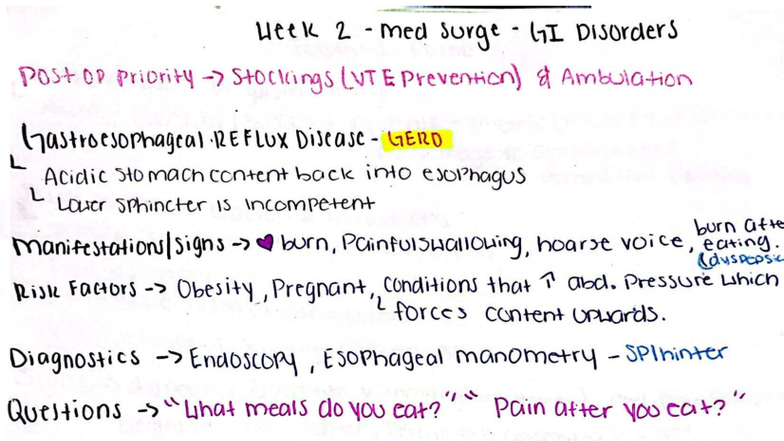 Week 2 - med surge - GI Disorders
Post op priority → Stockings (VTE Prevention) & Ambulation
Gastroesophageal REFLUX Disease - GERD
Acidic stomach content back into esophagus
Lower sphincter is incompetent
Manifestations/signs → ♥ burn, Painful swallowing, hoarse voice, burn after eating.
(dyspepsia
Risk Factors → Obesity, Pregnant, conditions that ↑ abd. Pressure which
forces content upwards.
Diagnostics → Endoscopy, Esophageal manometry - SPIhinter
Questions → "What meals do you eat?" "Pain after you eat?"